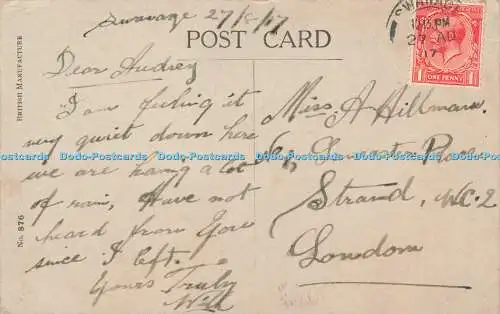 Swanage 27/8/17
POST CARD
SWANAGE
1015 PM
27 AU
17
ONE PENNY
BRITISH MANUFACTURE
No. 876
Dear Audrey
I am feeling it
very quiet down here
we are having a lot
of rain, Have not
heard from you
since I left.
Yours Truly
Will
Miss A Hillman
Place
Strand, W.C.2
London
Dodo-Postcards Dodo-Postcards Dodo-Postcards Dodo-Postcards Dodo-Postcards Dodo-Postcards